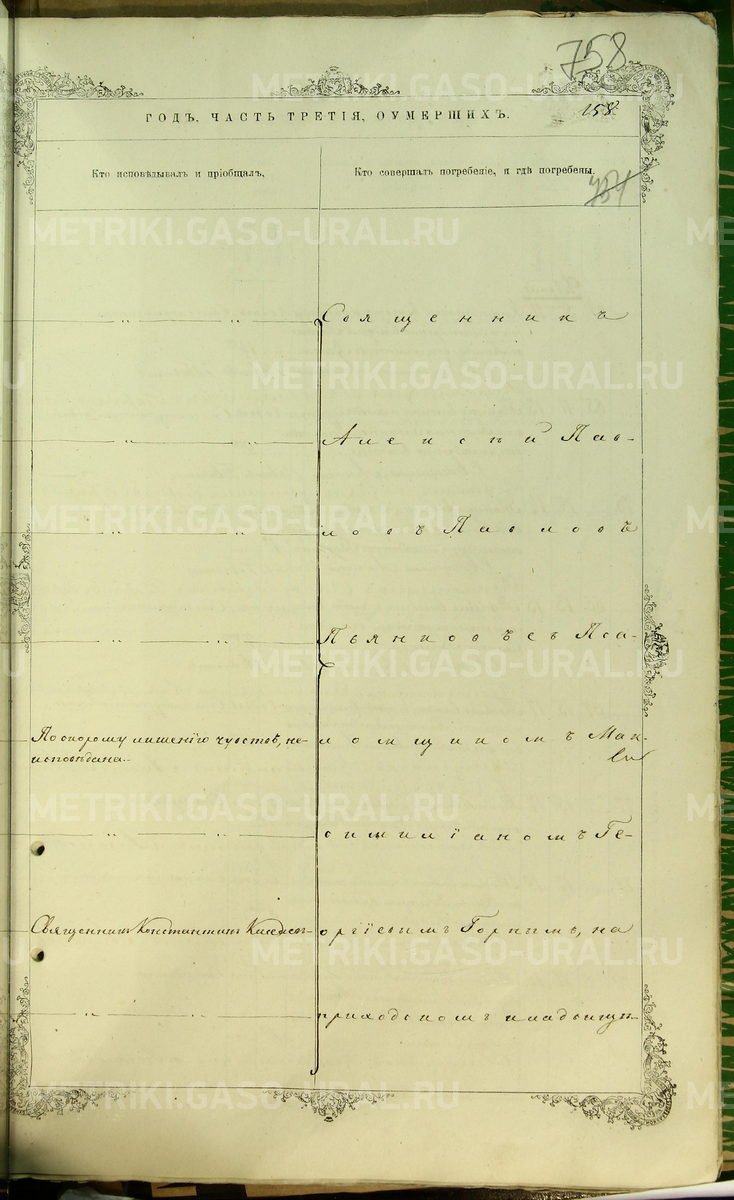 758
ГОДЪ, ЧАСТЬ ТРЕТІЯ, О УМЕРШИХЪ.
158
Кто исповѣдывалъ и пріобщалъ.
Кто совершалъ погребеніе, и гдѣ погребены.
Священникъ
Алексѣй Пав-
ловъ Павловъ
Пьянковъ съ Пса-
По скорому лишенію чувствъ, не
исповѣдана.
ломщикомъ Мак-
симиліаномъ Ге-
Священникъ Константинъ
оргіевымъ Горнымъ, на
приходскомъ кладбищѣ.
METRIKI.GASO-URAL.RU